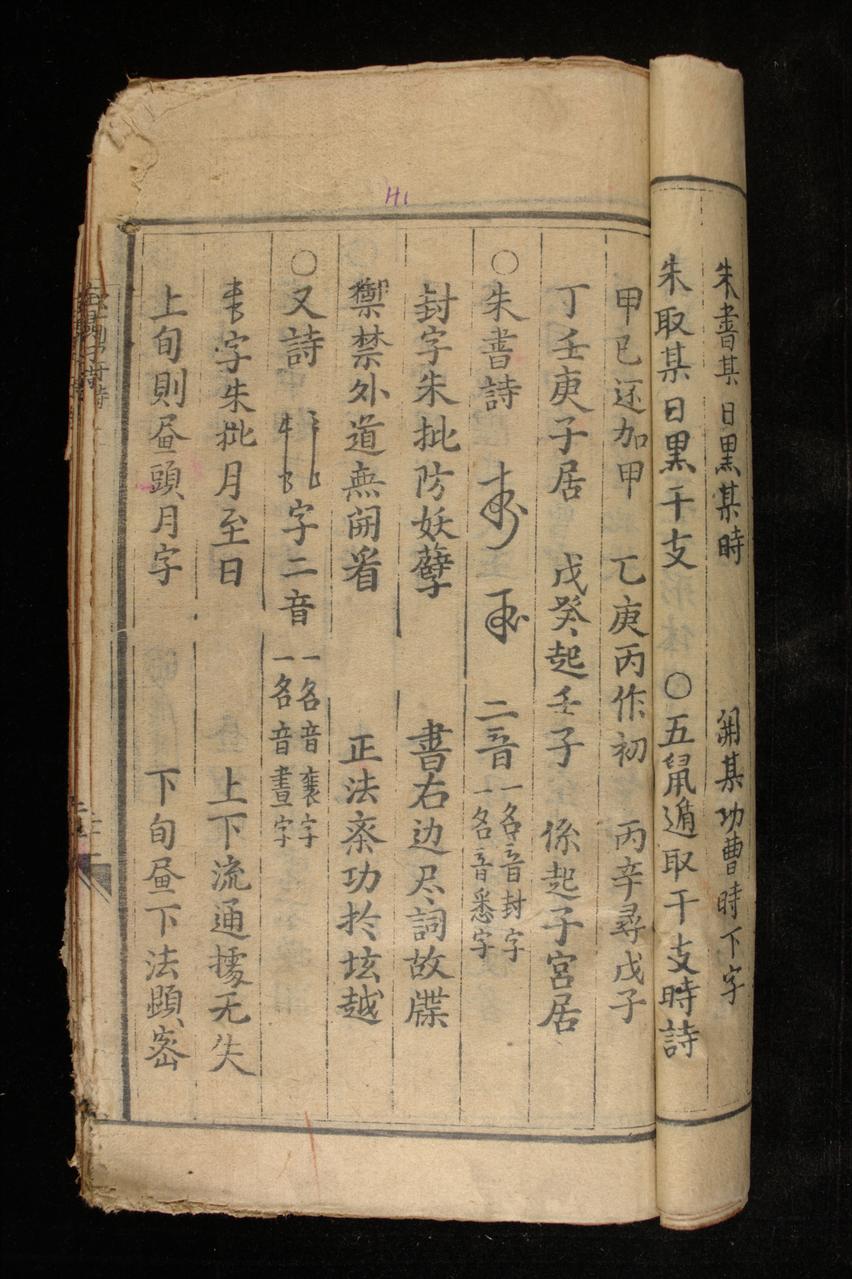 朱書某日黑某時 開某功曹時下字
朱取某日黑干支 〇五鼠遁取干支時詩
甲己还加甲 乙庚丙作初 丙辛尋戊子
丁壬庚子居 戊癸起壬子 係起子宮居
〇朱書詩 二音 一名音封字 一名音悉字
封字朱批防妖孽 書右边尽詞故牒
禦禁外道無開看 正法案功扵垓越
〇又詩 字二音 一名音褁字 一名音晝字
字朱批月至日 上下流通據无失
上旬則昼頭月字 下旬昼下法顕密
H1